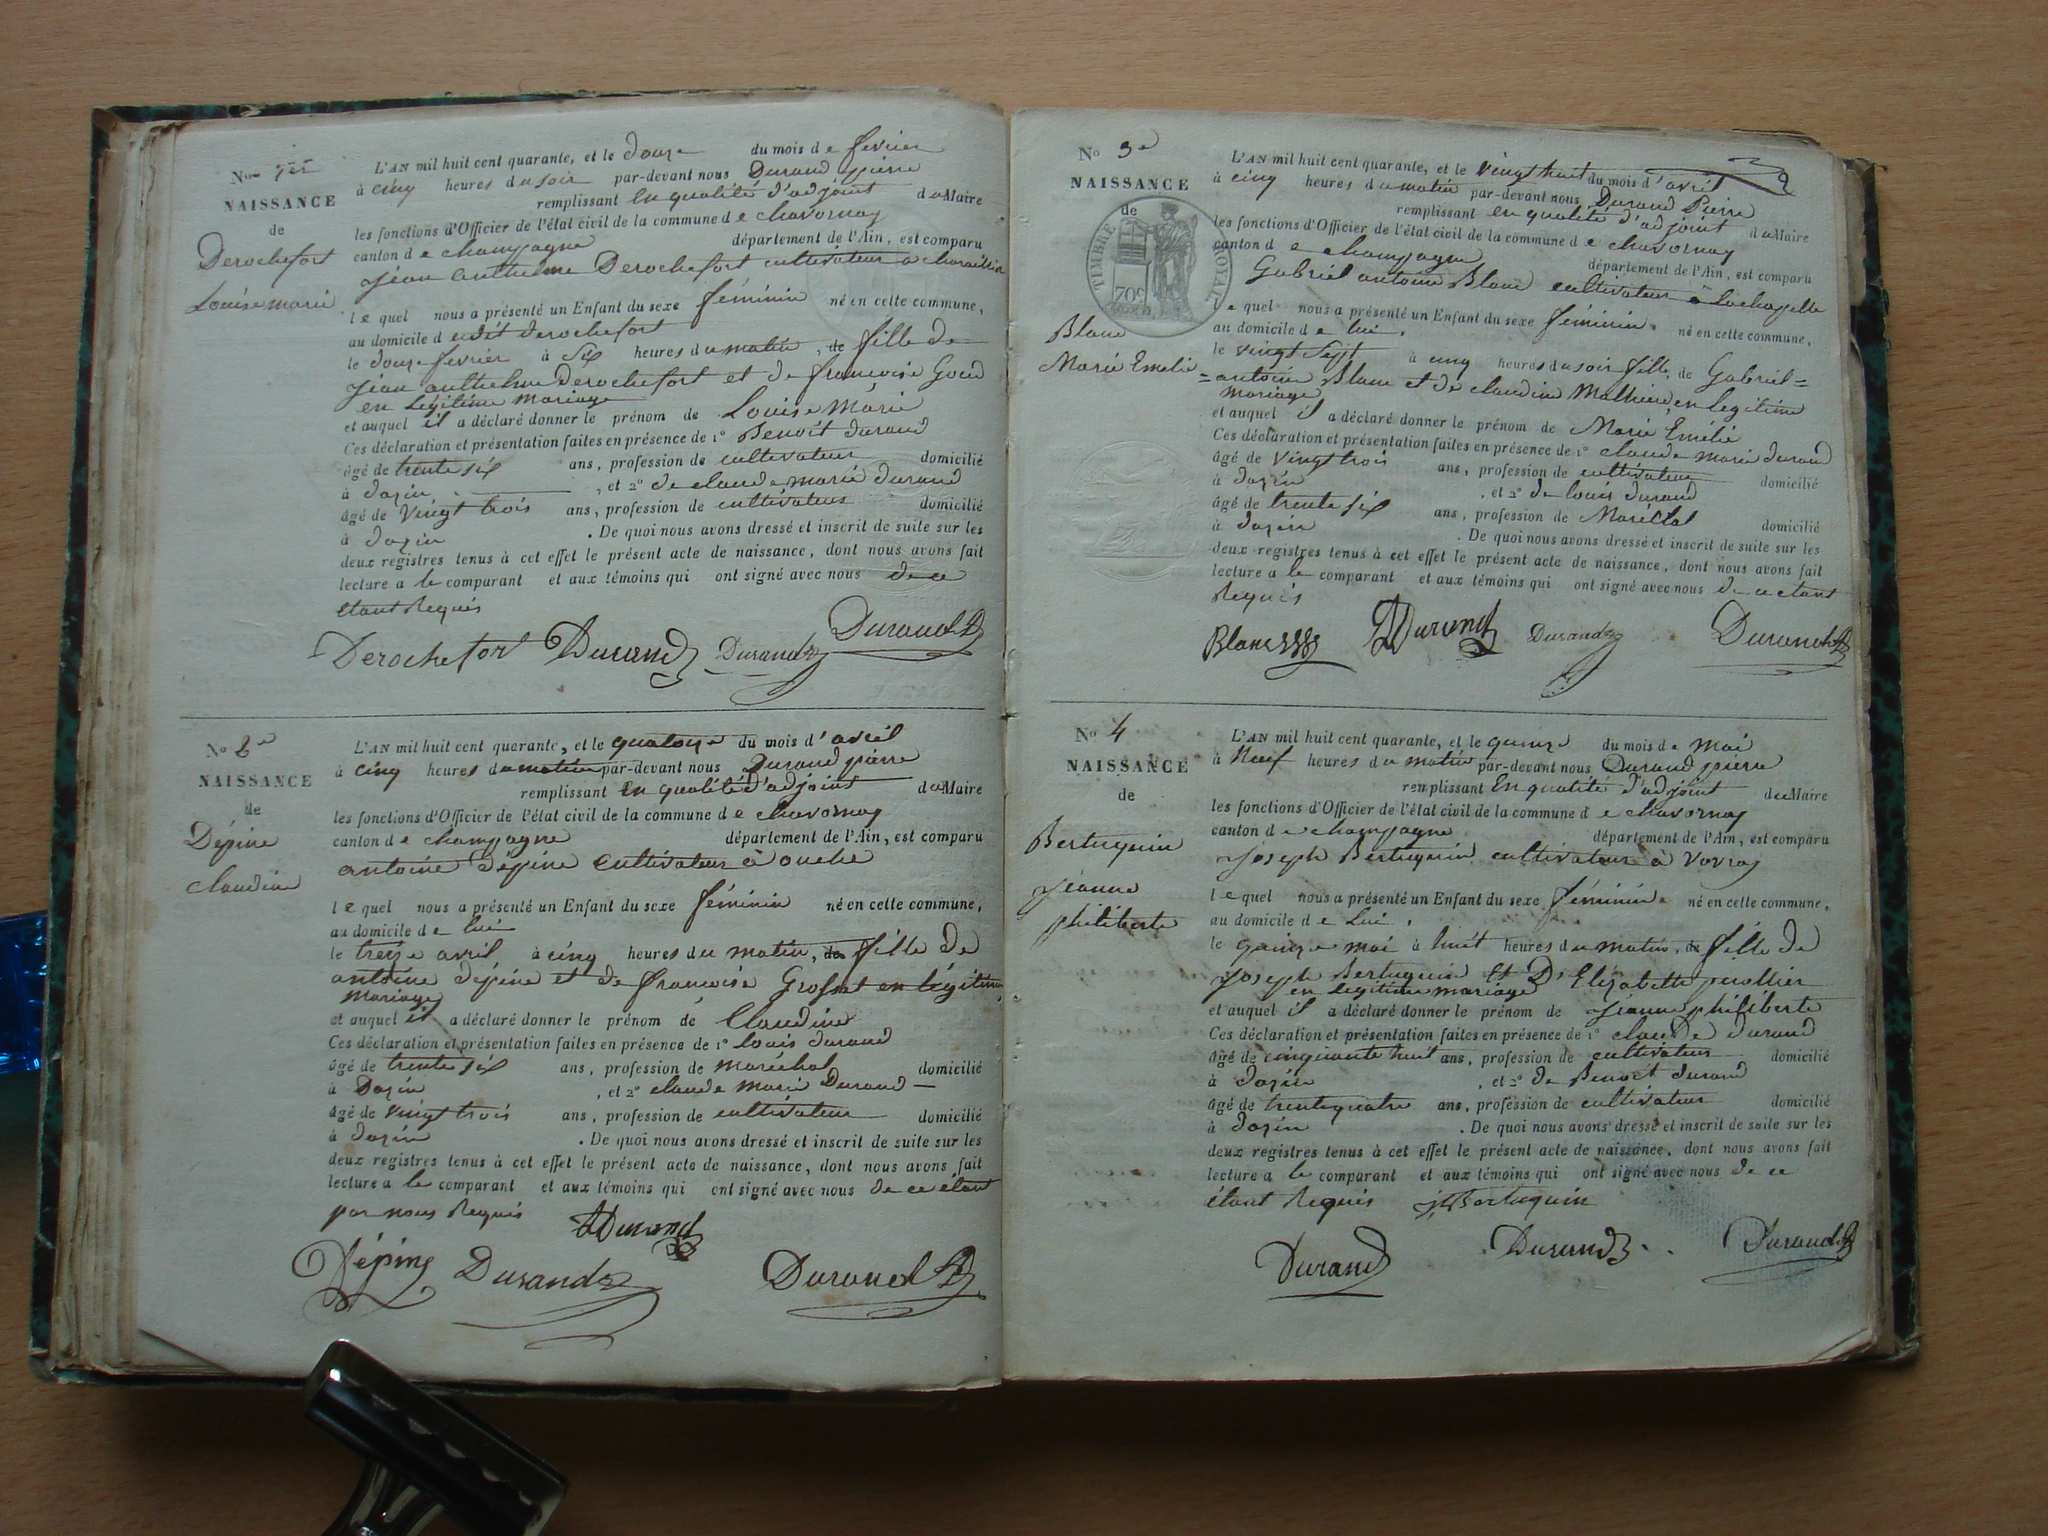 No 1er
NAISSANCE
de
Derochefort
Louise marie
L'AN mil huit cent quarante, et le douze du mois de fevrier
à cinq heures du soir par-devant nous Durand pierre
remplissant en qualité d'adjoint du Maire
les fonctions d'Officier de l'état civil de la commune de chavornay
canton de champagne département de l'Ain, est comparu
Jean anthelme Derochefort cultivateur a
lequel nous a présenté un Enfant du sexe féminin né en cette commune,
au domicile d udit derochefort
le douze fevrier à six heures du matin, de fille de
Jean anthelme Derochefort et de francoise
en légitime mariage
et auquel il a déclaré donner le prénom de Louise Marie
Ces déclaration et présentation faites en présence de 1° Benoît durand
âgé de trente six ans, profession de cultivateur domicilié
à dazin, et 2° de claude marie durand
âgé de vingt trois ans, profession de cultivateur domicilié
à dazin. De quoi nous avons dressé et inscrit de suite sur les
deux registres tenus à cet effet le présent acte de naissance, dont nous avons fait
lecture a le comparant et aux témoins qui ont signé avec nous de ce
étant Requis
Derochefort Durand Durand Durand
No 2e
NAISSANCE
de
Dépine
claudine
L'AN mil huit cent quarante, et le quatorze du mois d'avril
à cinq heures du matin par-devant nous Durand pierre
remplissant en qualité d'adjoint du Maire
les fonctions d'Officier de l'état civil de la commune de chavornay
canton de champagne département de l'Ain, est comparu
antoine dépine cultivateur à ouche
lequel nous a présenté un Enfant du sexe féminin né en cette commune,
au domicile de lui
le treize avril à cinq heures du matin, de fille de
antoine dépine et de francoise Grosset en légitime
mariage
et auquel il a déclaré donner le prénom de Claudine
Ces déclaration et présentation faites en présence de 1° louis durand
âgé de trente six ans, profession de maréchal domicilié
à Dazin, et 2° claude marie Durand
âgé de vingt trois ans, profession de cultivateur domicilié
à dazin. De quoi nous avons dressé et inscrit de suite sur les
deux registres tenus à cet effet le présent acte de naissance, dont nous avons fait
lecture a le comparant et aux témoins qui ont signé avec nous de ce étant
par nous Requis Durand
Dépine Durand Durand
No 3e
NAISSANCE
de
TIMBRE ROYAL
70c
Blanc
Marie Emelie
L'AN mil huit cent quarante, et le vingt huit du mois d'avril
à cinq heures du matin par-devant nous Durand Pierre
remplissant en qualité d'adjoint du Maire
les fonctions d'Officier de l'état civil de la commune de chavornay
canton de champagne département de l'Ain, est comparu
Gabriel antoine Blanc cultivateur à lachapelle
lequel nous a présenté un Enfant du sexe féminin né en cette commune,
au domicile de lui.
le vingt sept à cinq heures du soir fille de Gabriel=
=antoine Blanc et de claudine Mathieu, en legitime
mariage
et auquel il a déclaré donner le prénom de Marie Emélie
Ces déclaration et présentation faites en présence de 1° claude marie durand
âgé de vingt trois ans, profession de cultivateur domicilié
à dazin, et 2° de louis durand
âgé de trente six ans, profession de Maréchal domicilié
à dazin. De quoi nous avons dressé et inscrit de suite sur les
deux registres tenus à cet effet le présent acte de naissance, dont nous avons fait
lecture a le comparant et aux témoins qui ont signé avec nous de ce étant
Requis
Blanc Durand Durand Durand
No 4
NAISSANCE
de
Bertuquin
jeanne
philiberte
L'AN mil huit cent quarante, et le quinze du mois de mai
à Neuf heures du matin par-devant nous Durand pierre
remplissant En qualité d'adjoint du Maire
les fonctions d'Officier de l'état civil de la commune de chavornay
canton de champagne département de l'Ain, est comparu
Joseph Bertuquin cultivateur à vovray
lequel nous a présenté un Enfant du sexe féminin né en cette commune,
au domicile de Lui.
le quinze mai à huit heures du matin, de fille de
Joseph Bertuquin Et D'Elizabette
en legitime mariage
et auquel il a déclaré donner le prénom de Jeanne philiberte
Ces déclaration et présentation faites en présence de 1° claude durand
âgé de cinquante huit ans, profession de cultivateur domicilié
à dazin, et 2° de Benoit durand
âgé de trentequatre ans, profession de cultivateur domicilié
à dazin. De quoi nous avons dressé et inscrit de suite sur les
deux registres tenus à cet effet le présent acte de naissance, dont nous avons fait
lecture a le comparant et aux témoins qui ont signé avec nous de ce
étant Requis Bertuquin
Durand Durand Durand